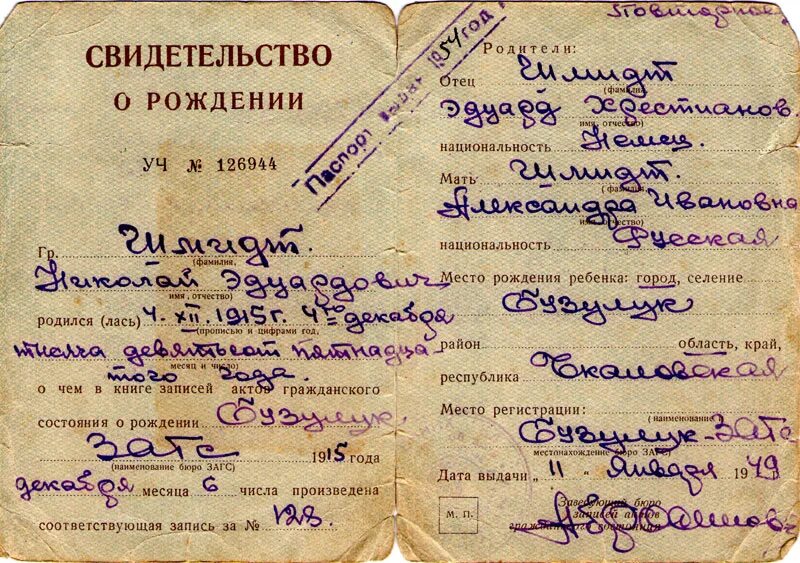 СВИДЕТЕЛЬСТВО
О РОЖДЕНИИ
УЧ № 126944
Паспорт выдан 1954 год
Гр. Шмидт.
(фамилия,
Николай Эдуардович
имя, отчество)
родился (лась) 4-XII.1915г. 4го декабря
(прописью и цифрами год,
тысяча девятьсот пятнадца-
месяц и число)
того года.
о чем в книге записей актов гражданского
состояния о рождении Бузулук.
ЗАГС 1915 года
(наименование бюро ЗАГС)
декабря месяца 6 числа произведена
соответствующая запись за № 123.
Повторное
Родители:
Отец Шмидт
(фамилия,
Эдуард Христианов.
имя, отчество)
национальность Немец.
Мать Шмидт.
(фамилия,
Александра Ивановна
имя, отчество)
национальность Русская
Место рождения ребенка: город, селение
Бузулук
район область, край,
республика Чкаловская
Место регистрации:
(наименование и
Бузулук-ЗАГС
местонахождение бюро ЗАГС)
Дата выдачи „11“ января 1949
М. П.
Заведующий бюро
записей актов
гражданского состояния